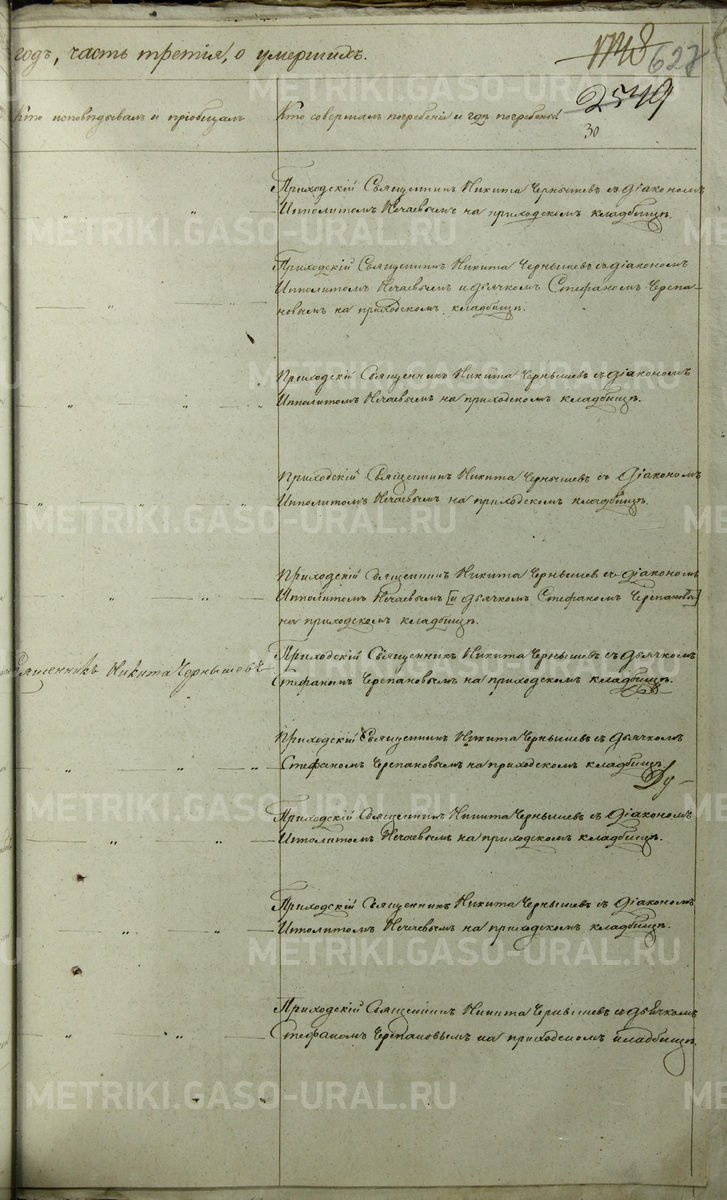 годъ, часть третія, о умершихъ.
1748 627
Кто исповѣдывалъ и пріобщалъ
Кто совершалъ погребеніе и гдѣ погребены.
2549
30
Приходскій Священникъ Никита Чернышевъ съ діакономъ
Ипполитомъ Нечаевымъ на приходскомъ кладбищѣ.
Приходскій Священникъ Никита Чернышевъ съ діакономъ
Ипполитомъ Нечаевымъ и дьячкомъ Стефаномъ Черепа-
новымъ на приходскомъ кладбищѣ.
Приходскій Священникъ Никита Чернышевъ съ діакономъ
Ипполитомъ Нечаевымъ на приходскомъ кладбищѣ.
Приходскій Священникъ Никита Чернышевъ съ діакономъ
Ипполитомъ Нечаевымъ на приходскомъ кладбищѣ.
Приходскій Священникъ Никита Чернышев съ діакономъ
Ипполитомъ Нечаевымъ [и дьячкомъ Стефаномъ Черепановы]
на приходскомъ кладбищѣ.
Священникъ Никита Чернышевъ
Приходскій Священникъ Никита Чернышевъ съ дьячкомъ
Стефаномъ Черепановымъ на приходскомъ кладбищѣ.
Приходскій Священникъ Никита Чернышевъ съ дьячкомъ
Стефаномъ Черепановымъ на приходскомъ кладбищѣ
Приходскій Священникъ Никита Чернышевъ съ діакономъ
Ипполитомъ Нечаевымъ на приходскомъ кладбищѣ.
Приходскій Священникъ Никита Чернышевъ съ діакономъ
Ипполитомъ Нечаевымъ на приходскомъ кладбищѣ.
Приходскій Священникъ Никита Чернышевъ съ дьячкомъ
Стефаномъ Черепановымъ на приходскомъ кладбищѣ
METRIKI.GASO-URAL.RU